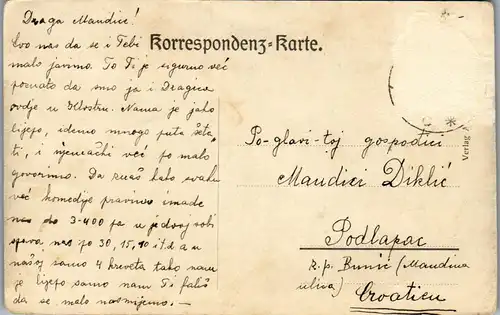 Draga Mandice!
Evo nas da se i Tebi
malo javimo. To Ti je sigurno već
poznato da smo ja i Dragica
ovdje u Klostru. Nama je jako
lijepo, idemo mnogo puta šeta-
ti, i njemački već po malo
govorimo. Da znaš kako svaku
već komediju pravimo imade
nas do 3-400 pa u jednoj sobi
spava nas po 30, 15, 10 i t.d. a u
našoj samo 4 kreveta tako nam
je lijepo samo nam Ti fališ
da se malo nasmijemo. —
Korrespondenz-Karte.
Po-glavi-toj gospodici
Mandici Diklić
Podlapac
z. p. Bunić (Mandina
ulica)
Croatien
Verlag